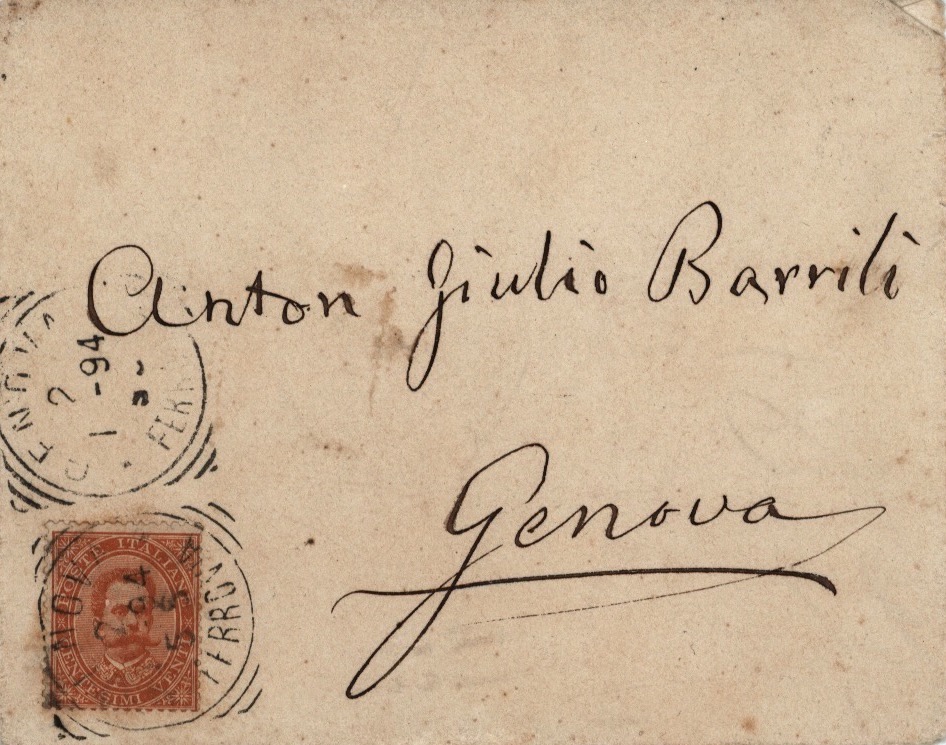 Anton Giulio Barrili
Genova
GENOVA
2
1 -94
POSTE ITALIANE
CENTESIMI VENTI
94
5 S
FERROVIA